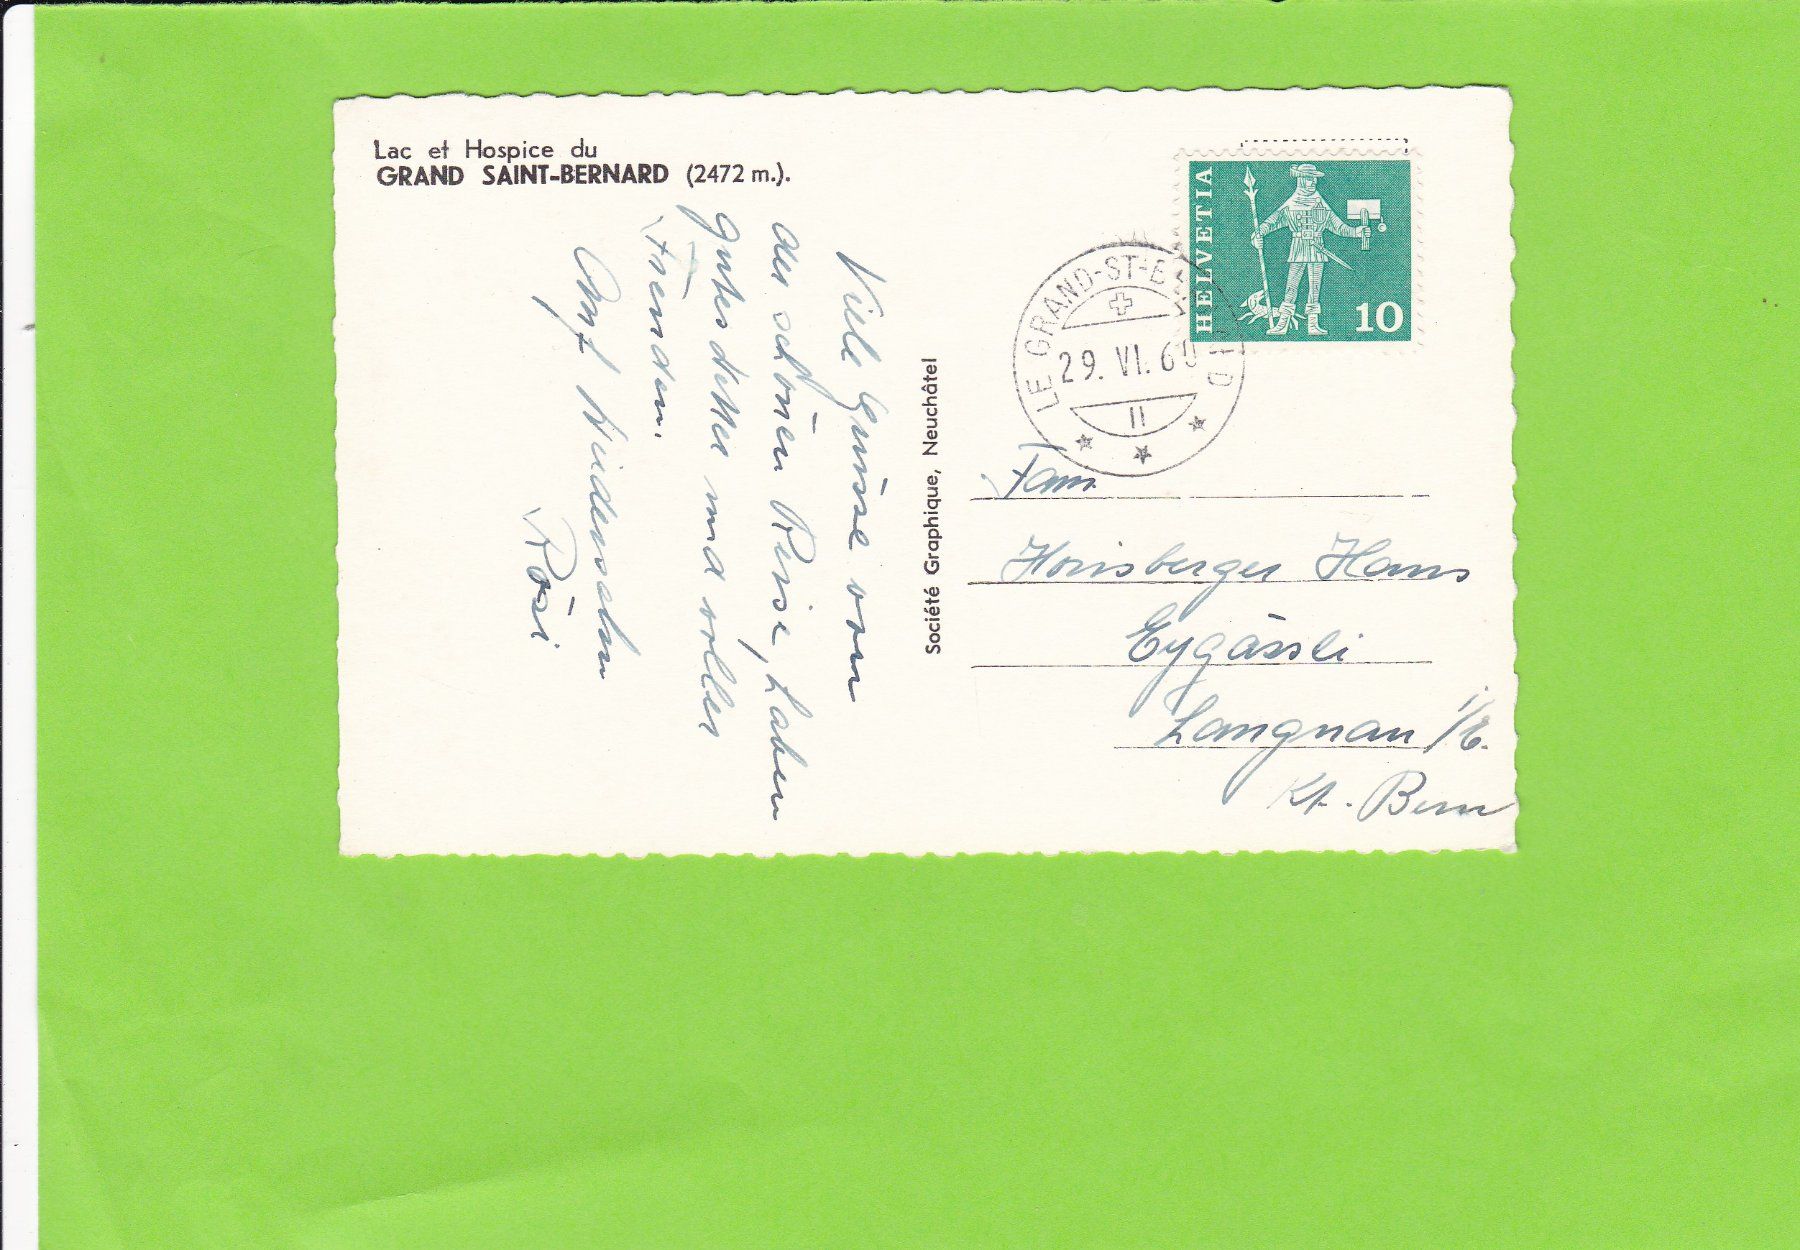 Lac et Hospice du
GRAND SAINT-BERNARD (2472 m.).
Viele Grüsse von
der schönen Reise, haben
gutes Wetter und voller
Freuden.
Auf Wiedersehn
Rösi
Société Graphique, Neuchâtel
HELVETIA
10
LE GRAND-ST-BERNARD
29. VI. 60
11
Fam.
Hans
Eygässli
Langnau i/E.
Kt. Bern